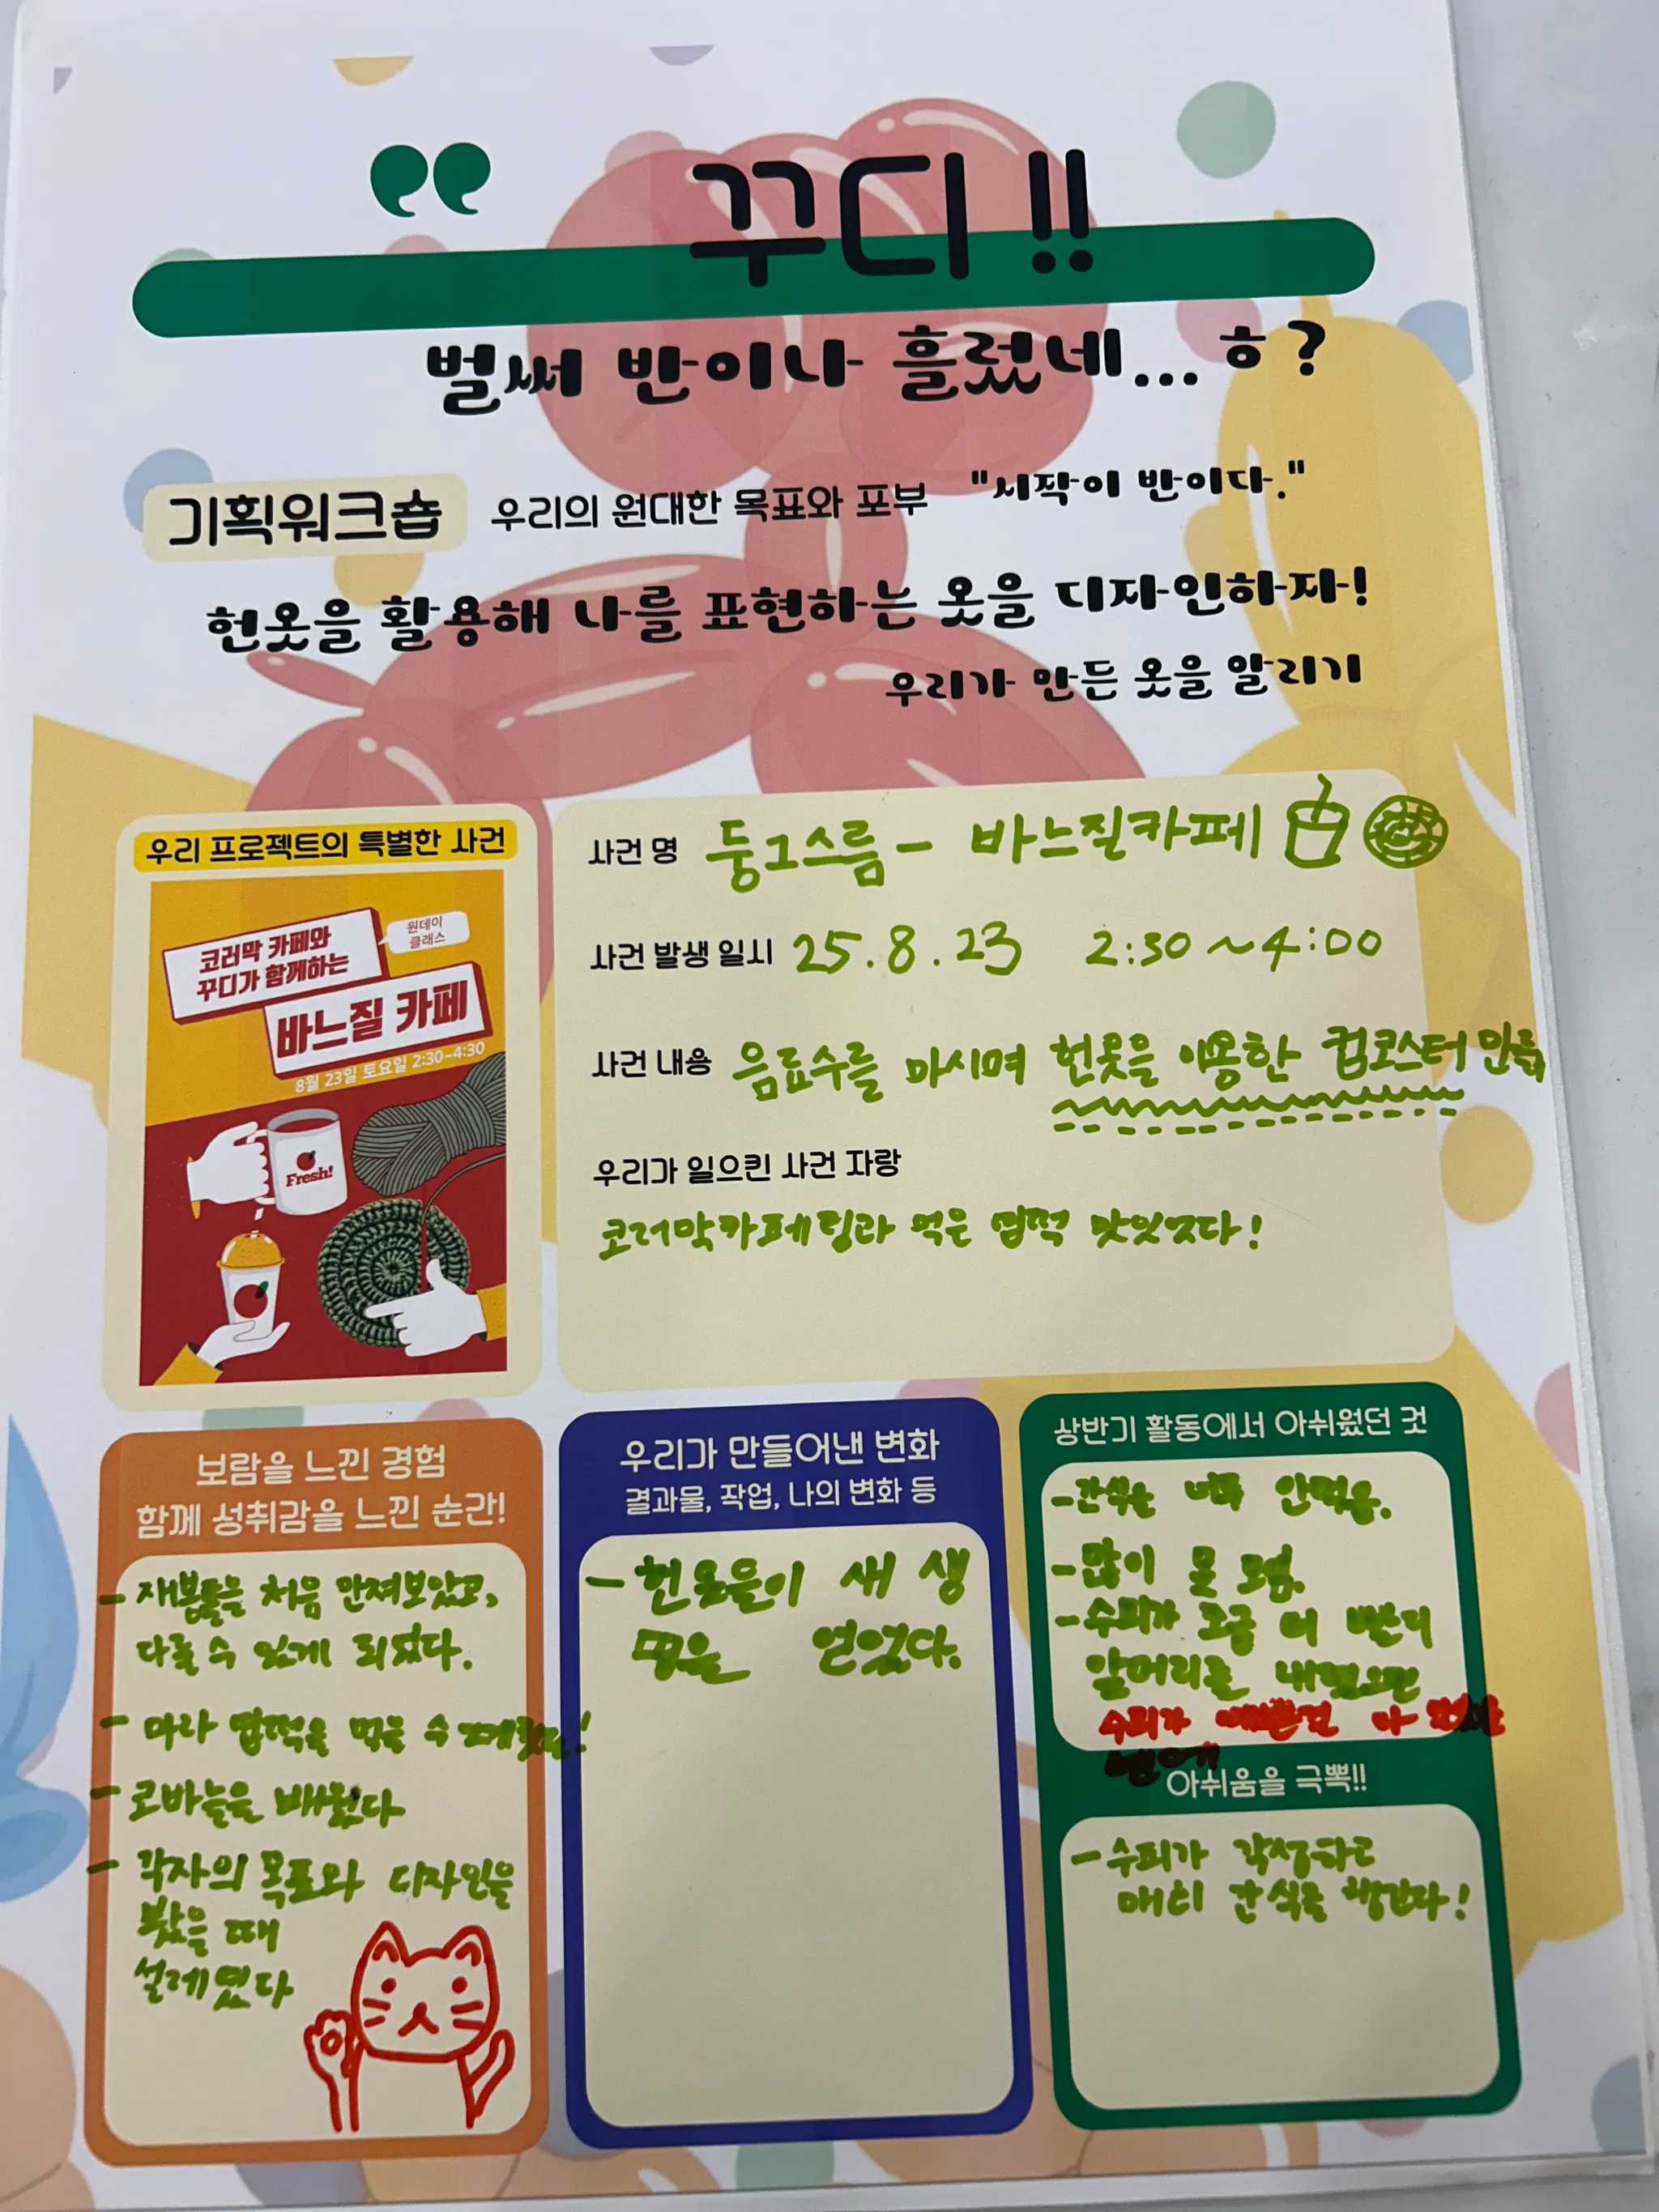 꾸디!!
벌써 반이나 흘렀네...ㅎ?
기획워크숍 우리의 원대한 목표와 포부 "시작이 반이다."
헌옷을 활용해 나를 표현하는 옷을 디자인하자!
우리가 만든 옷을 알리기
우리 프로젝트의 특별한 사건
원데이
클래스
코러막 카페와
꾸디가 함께하는
바느질 카페
8월 23일 토요일 2:30-4:30
Fresh!
사건 명 둥그스름 - 바느질카페
사건 발생 일시 25.8.23 2:30~4:00
사건 내용 음료수를 마시며 헌옷을 이용한 컵코스터 만듦
우리가 일으킨 사건 자랑
코러막카페팅라 먹은 떡 맛있었다!
보람을 느낀 경험
함께 성취감을 느낀 순간!
- 재봉틀을 처음 만져보았고,
다룰 수 있게 되었다.
- 마라 먹을 수
- 코바늘을 배웠다
- 각자의 목표와 디자인을
봤을 때
설레였다
우리가 만들어낸 변화
결과물, 작업, 나의 변화 등
- 헌옷들이 새 생
명을 얻었다.
상반기 활동에서 아쉬웠던 것
- 간식을 안먹음.
- 많이 못 모임.
- 수피가 조금 더 빨리
앞머리를 내렸으면
수피가 예쁜건
아쉬움을 극뽁!!
- 수피가 각성하고
매일 간식을 챙긴다!